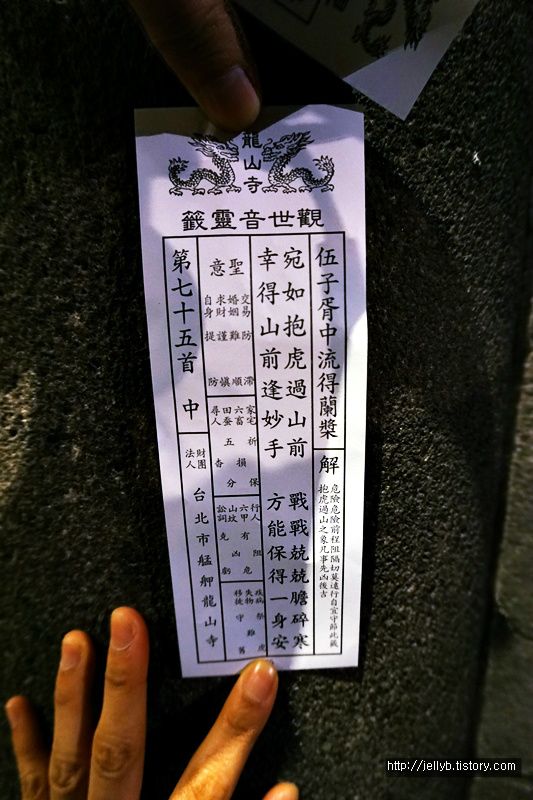 龍山寺
觀世音靈籤
伍子胥中流得蘭槳
解
危險危險前程阻隔切莫遠行自宜守節此籤
抱虎過山之象凡事先凶後吉
宛如抱虎過山前 戰戰兢兢膽碎寒
幸得山前逢妙手 方能保得一身安
聖意
交易防滯
婚姻難順
求財謹慎
自身提防
家宅祈保
六畜損
田蚕五分
尋人杳
行人阻
六甲有危
山墳凶
訟詞克虧
疾病祭虎
失物難
移徙守舊
第七十五首 中
財團法人 台北市艋舺龍山寺
http://jellyb.tistory.com